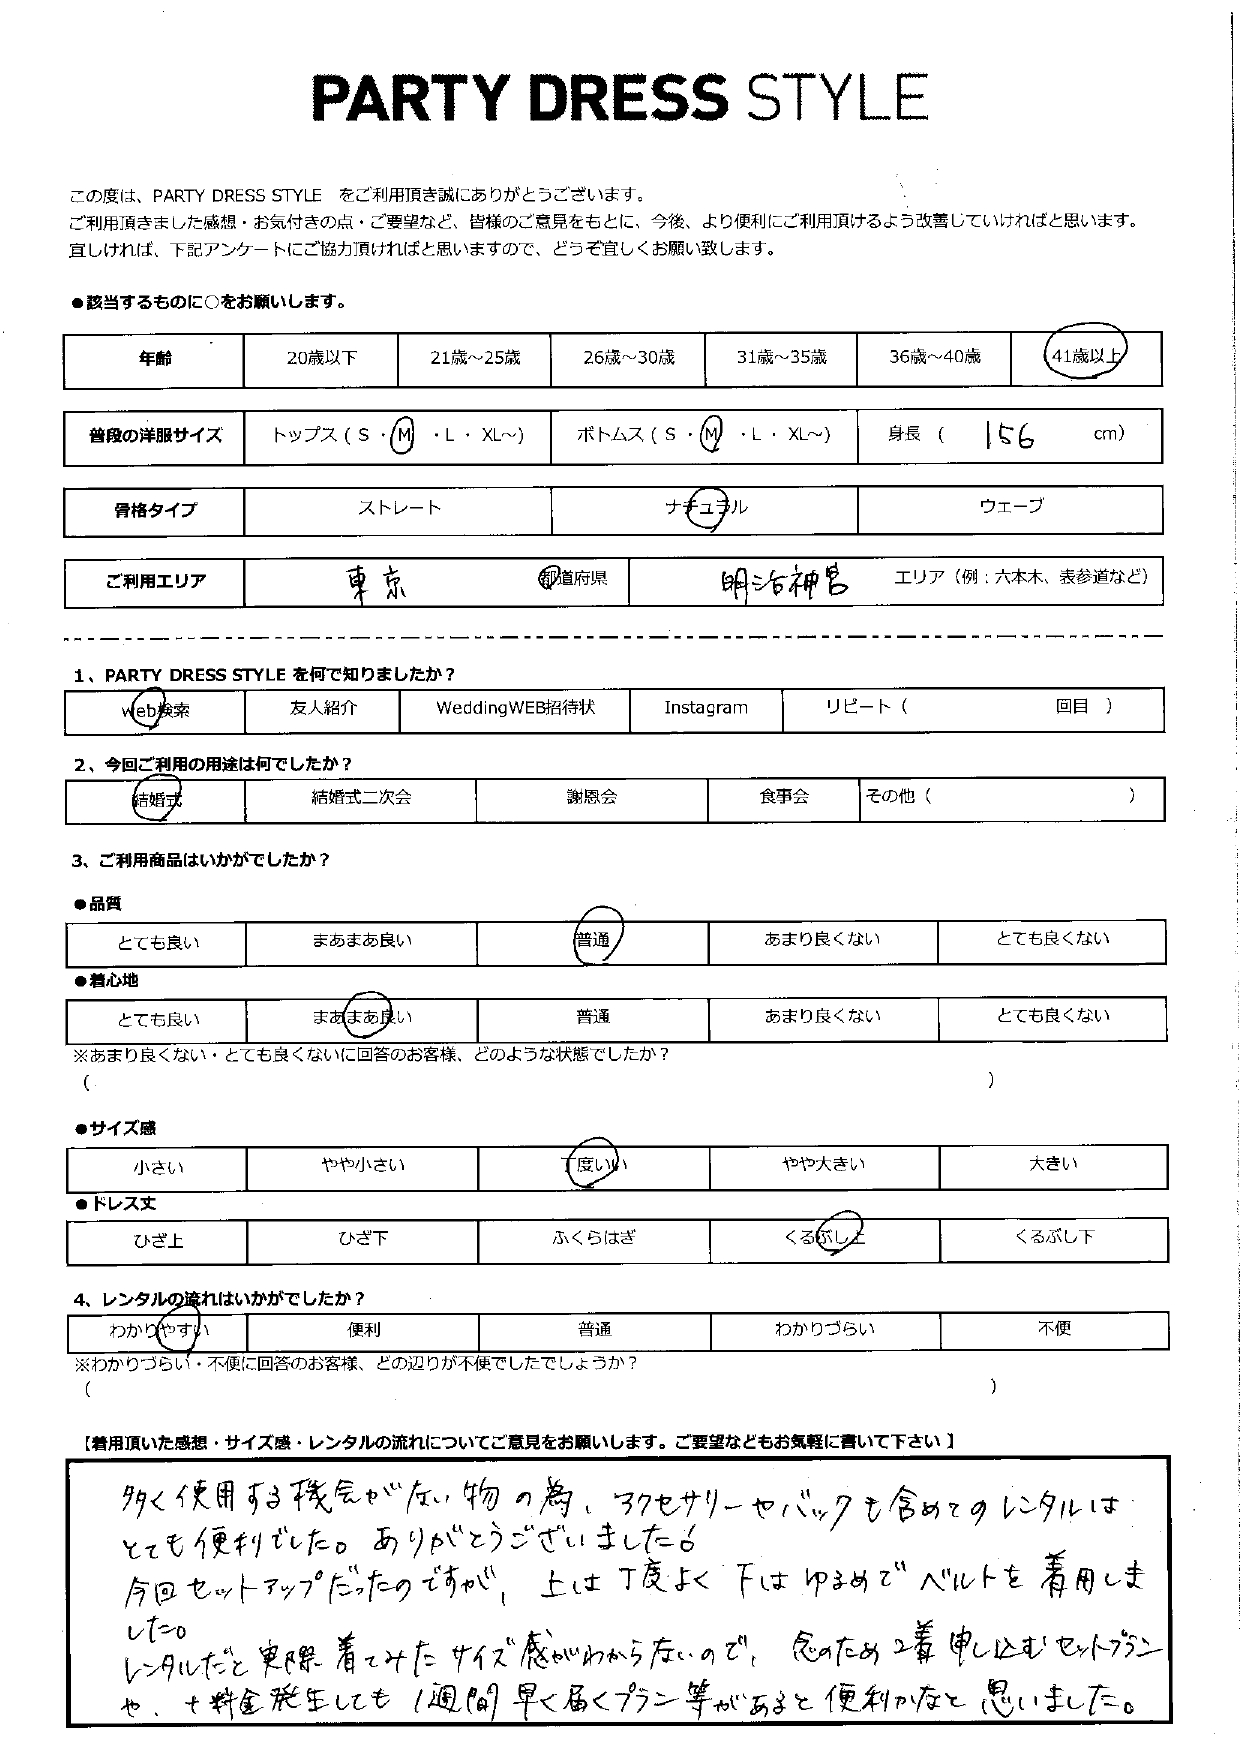 PARTY DRESS STYLE
この度は、PARTY DRESS STYLE をご利用頂き誠にありがとうございます。
ご利用頂きました感想・お気付きの点・ご要望など、皆様のご意見をもとに、今後、より便利にご利用頂けるよう改善していければと思います。
宜しければ、下記アンケートにご協力頂ければと思いますので、どうぞ宜しくお願い致します。
●該当するものに○をお願いします。
年齢 20歳以下 21歳～25歳 26歳～30歳 31歳～35歳 36歳～40歳 41歳以上
普段の洋服サイズ トップス ( S ・ M ・L ・ XL～) ボトムス ( S ・ M ・L ・ XL～) 身長 ( 156 cm)
骨格タイプ ストレート ナチュラル ウェーブ
ご利用エリア 東京 都道府県 明治神宮 エリア（例：六本木、表参道など）
1、PARTY DRESS STYLE を何で知りましたか？
Web検索 友人紹介 WeddingWEB招待状 Instagram リピート ( 回目 )
2、今回ご利用の用途は何でしたか？
結婚式 結婚式二次会 謝恩会 食事会 その他 ( )
3、ご利用商品はいかがでしたか？
●品質
とても良い まあまあ良い 普通 あまり良くない とても良くない
●着心地
とても良い まあまあ良い 普通 あまり良くない とても良くない
※あまり良くない・とても良くないに回答のお客様、どのような状態でしたか？
( )
●サイズ感
小さい やや小さい 丁度いい やや大きい 大きい
●ドレス丈
ひざ上 ひざ下 ふくらはぎ くるぶし上 くるぶし下
4、レンタルの流れはいかがでしたか？
わかりやすい 便利 普通 わかりづらい 不便
※わかりづらい・不便に回答のお客様、どの辺りが不便でしたでしょうか？
( )
【着用頂いた感想・サイズ感・レンタルの流れについてご意見をお願いします。ご要望などもお気軽に書いて下さい 】
多く使用する機会がない物の為、アクセサリーやバックも含めてのレンタルは
とても便利でした。ありがとうございました。
今回セットアップだったのですが、上は丁度よく下はゆるめでベルトを着用しま
した。
レンタルだと実際着てみたサイズ感がわからないので、念のため2着申し込むセットプラン
や、+料金発生しても1週間早く届くプラン等があると便利かなと思いました。